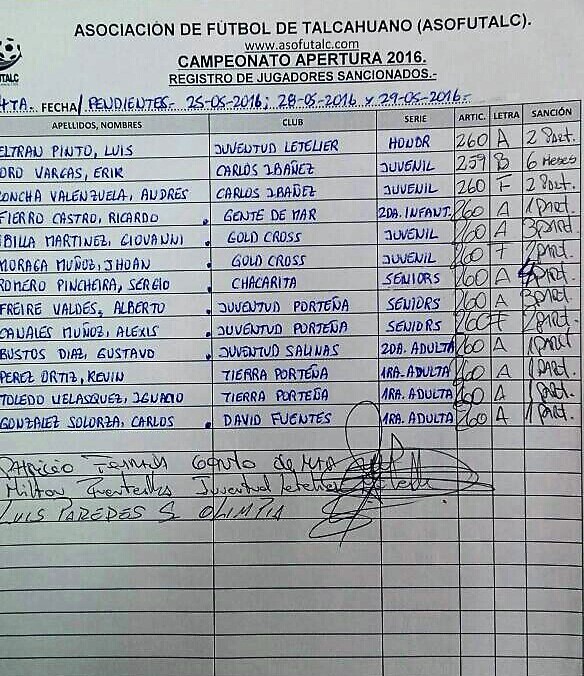 ASOCIACIÓN DE FÚTBOL DE TALCAHUANO (ASOFUTALC).
www.asofutalc.com
CAMPEONATO APERTURA 2016.
REGISTRO DE JUGADORES SANCIONADOS.-
4TA. FECHA/PENDIENTES.- 25-05-2016; 28-05-2016 y 29-05-2016.-
APELLIDOS, NOMBRES CLUB SERIE ARTIC. LETRA SANCIÓN
ELTRAN PINTO, LUIS JUVENTUD LETELIER HONOR 260 A 2 Part.
ORO VARGAS, ERIK CARLOS IBAÑEZ JUVENIL 259 B 6 meses
CONCHA VALENZUELA, ANDRES CARLOS IBAÑEZ JUVENIL 260 F 2 Part.
FIERRO CASTRO, RICARDO GENTE DE MAR 2DA. INFANT. 260 A 1 Part.
BILLA MARTINEZ, GIOVANNI GOLD CROSS JUVENIL 260 A 3 Part.
MORAGA MUÑOZ, JHOAN GOLD CROSS JUVENIL 260 F 2 Part.
ROMERO PINCHEIRA, SERGIO CHACARITA SENIORS 260 A Part.
FREIRE VALDES, ALBERTO JUVENTUD PORTEÑA SENIORS 260 A 3 Part.
CANALES MUÑOZ, ALEXIS JUVENTUD PORTEÑA SENIORS 260 F 2 Part.
BUSTOS DIAZ, GUSTAVO JUVENTUD SALINAS 2DA. ADULTA 260 A 1 Part.
PEREZ ORTIZ, KEVIN TIERRA PORTEÑA 1RA. ADULTA 260 A 1 Part.
TOLEDO VELASQUEZ, IGNACIO TIERRA PORTEÑA 1RA. ADULTA 260 A 1 Part.
GONZALEZ SOLORZA, CARLOS DAVID FUENTES 1RA. ADULTA 260 A 1 Part.
Patricio Gente de mar
Milton Fuentes Juventud Letelier
LUIS PAREDES S OLIMPIA